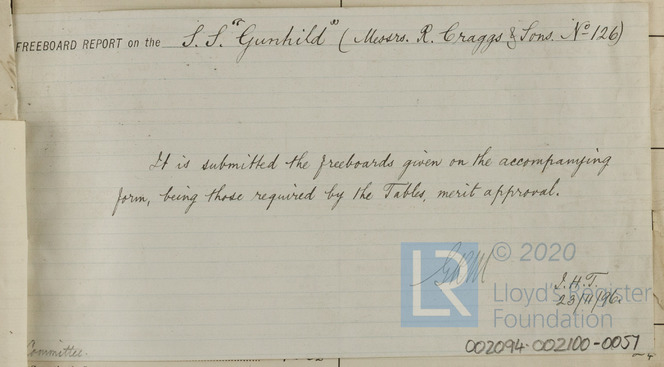 FREEBOARD REPORT on the S.S. "Gunhild" (Messrs. R. Craggs & Sons. No 126)
It is submitted the freeboards given on the accompanying
form, being those required by the Tables, merit approval.
© 2020
LR
Lloyd's Register
Foundation
J.H.T.
23/11/96.
002094-002100-0051
Committee.